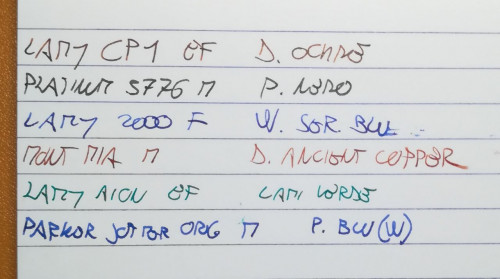 LAMY CP1 EF D. OCHRE
PLATINUM 3776 M P. NERO
LAMY 2000 F W. SER. BLUE
MONT MIA M D. ANCIENT COPPER
LAMY AION EF LAMI VERDE
PARKER JOTTER ORIG M P. BLU (W)